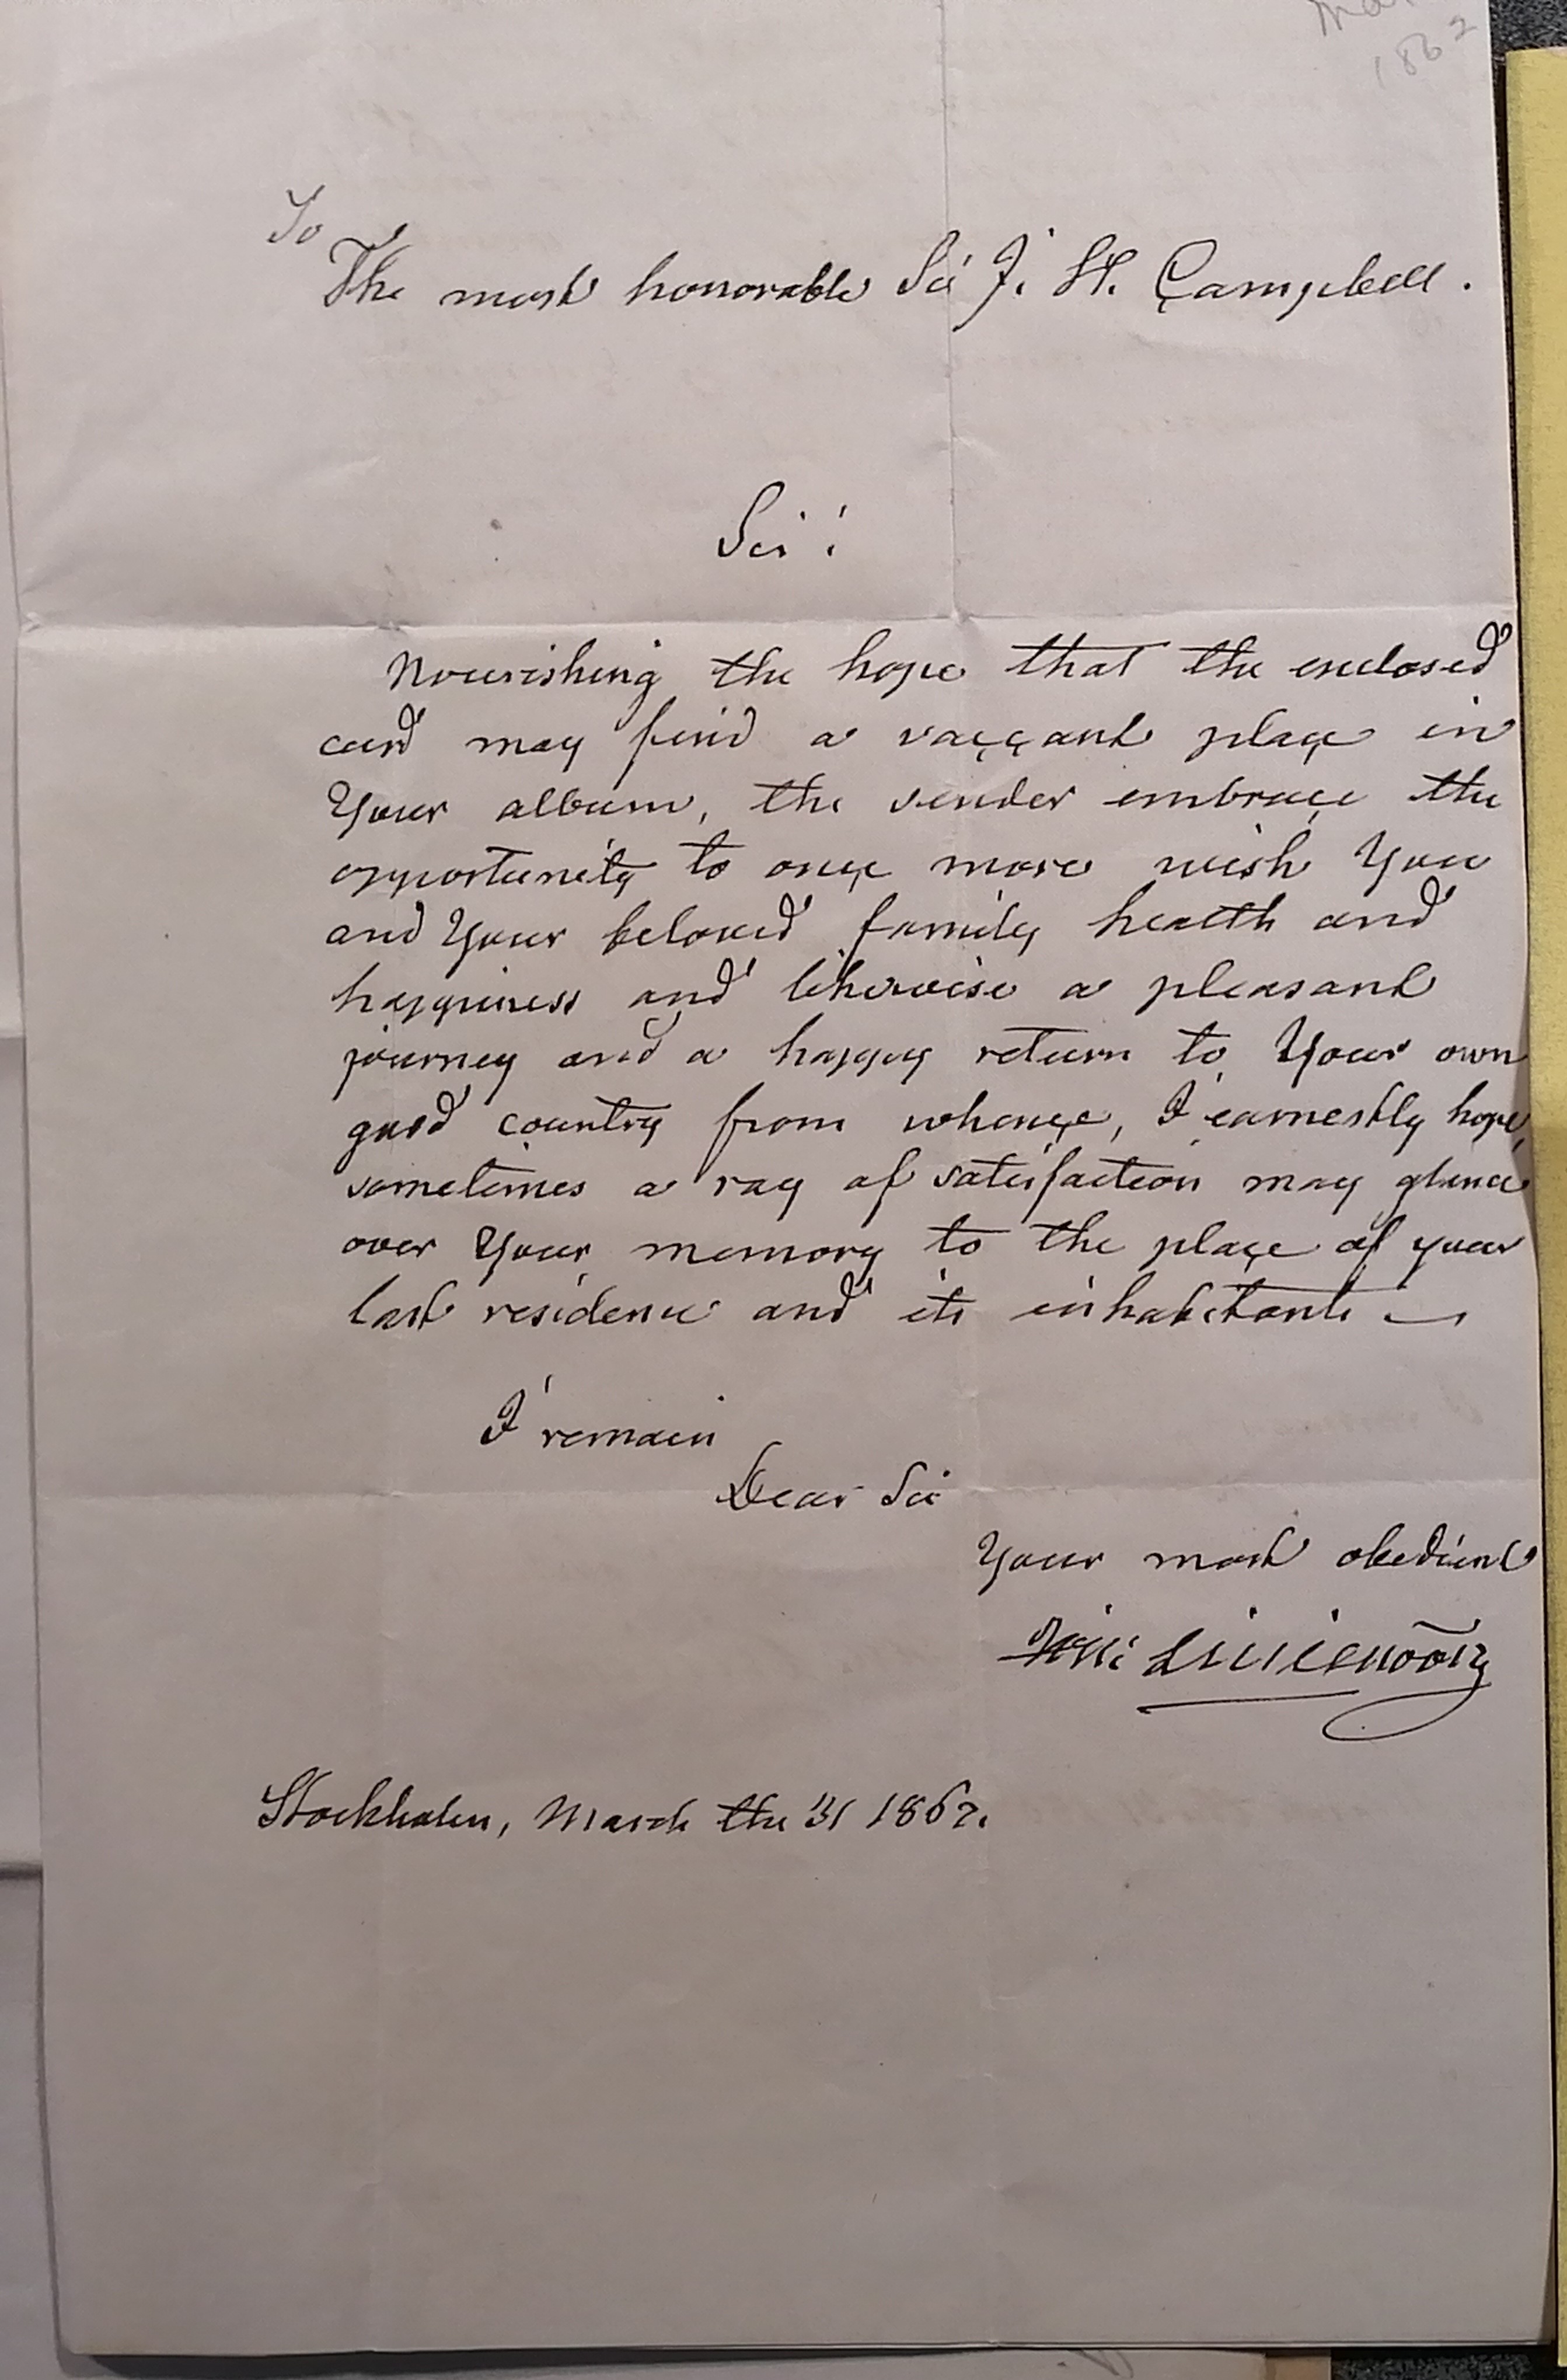 1862
To
The most honorable Sir J. H. Campbell.
Sir!
Nourishing the hope that the enclosed
card may find a vaccant place in
Your album, the sender embrace the
opportunity to once more wish You
and Your beloved family health and
happiness and likewise a pleasant
journey and a happy return to Your own
good country from whence, I earnestly hope,
sometimes a ray of satisfaction may glance
over Your memory to the place of your
last residence and its inhabitants —
I remain
Dear Sir
Your most obedient
Stockholm, March the 31 1867.